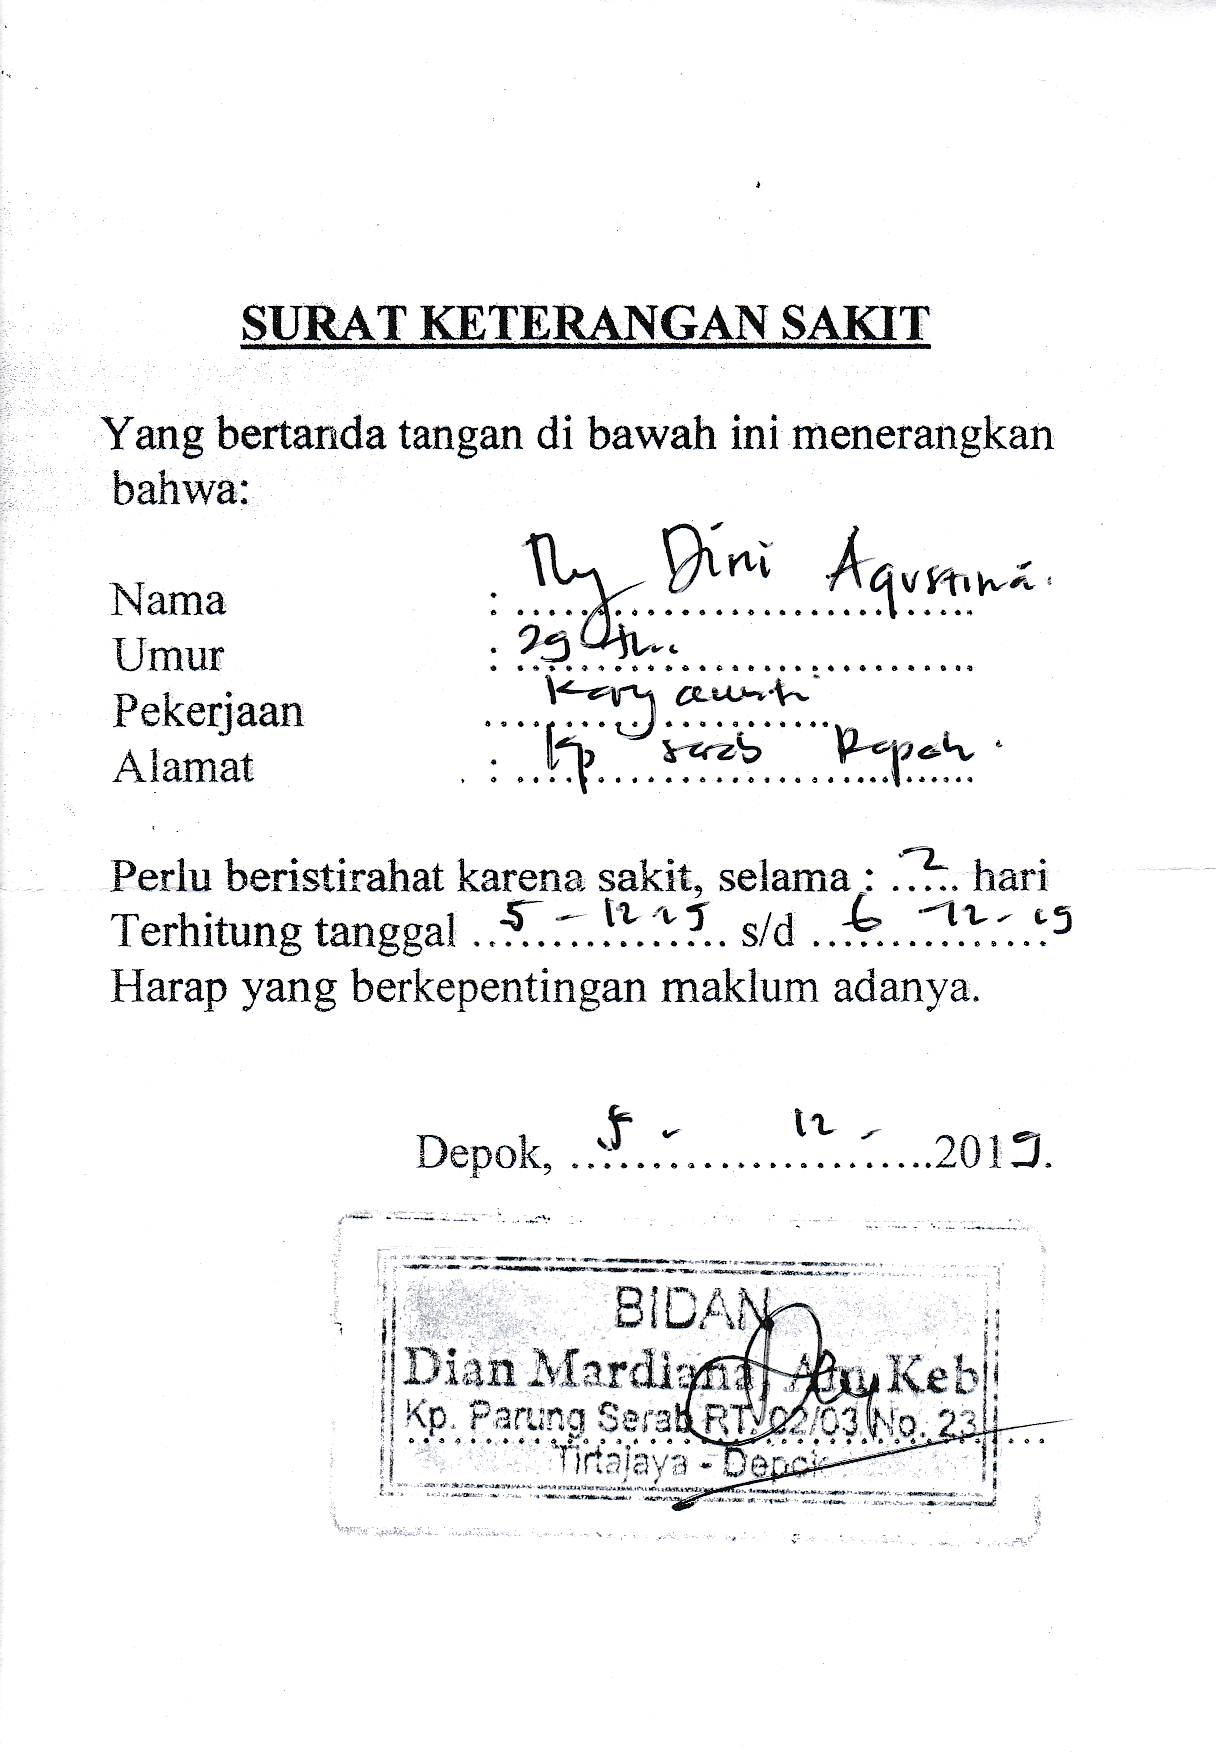 SURAT KETERANGAN SAKIT
Yang bertanda tangan di bawah ini menerangkan
bahwa:
Nama : Ny Dini Agustina.
Umur : 29 th..
Pekerjaan Karyawati
Alamat : Kp serab Depok.
Perlu beristirahat karena sakit, selama : 2 hari
Terhitung tanggal 5 - 12 - 19 s/d 6 - 12 - 19
Harap yang berkepentingan maklum adanya.
Depok, 5 - 12 - 2019.
BIDAN
Dian Mardiana, Keb
Kp. Parung Serab RT. 02/03 No. 23
Tirtajaya - Depok